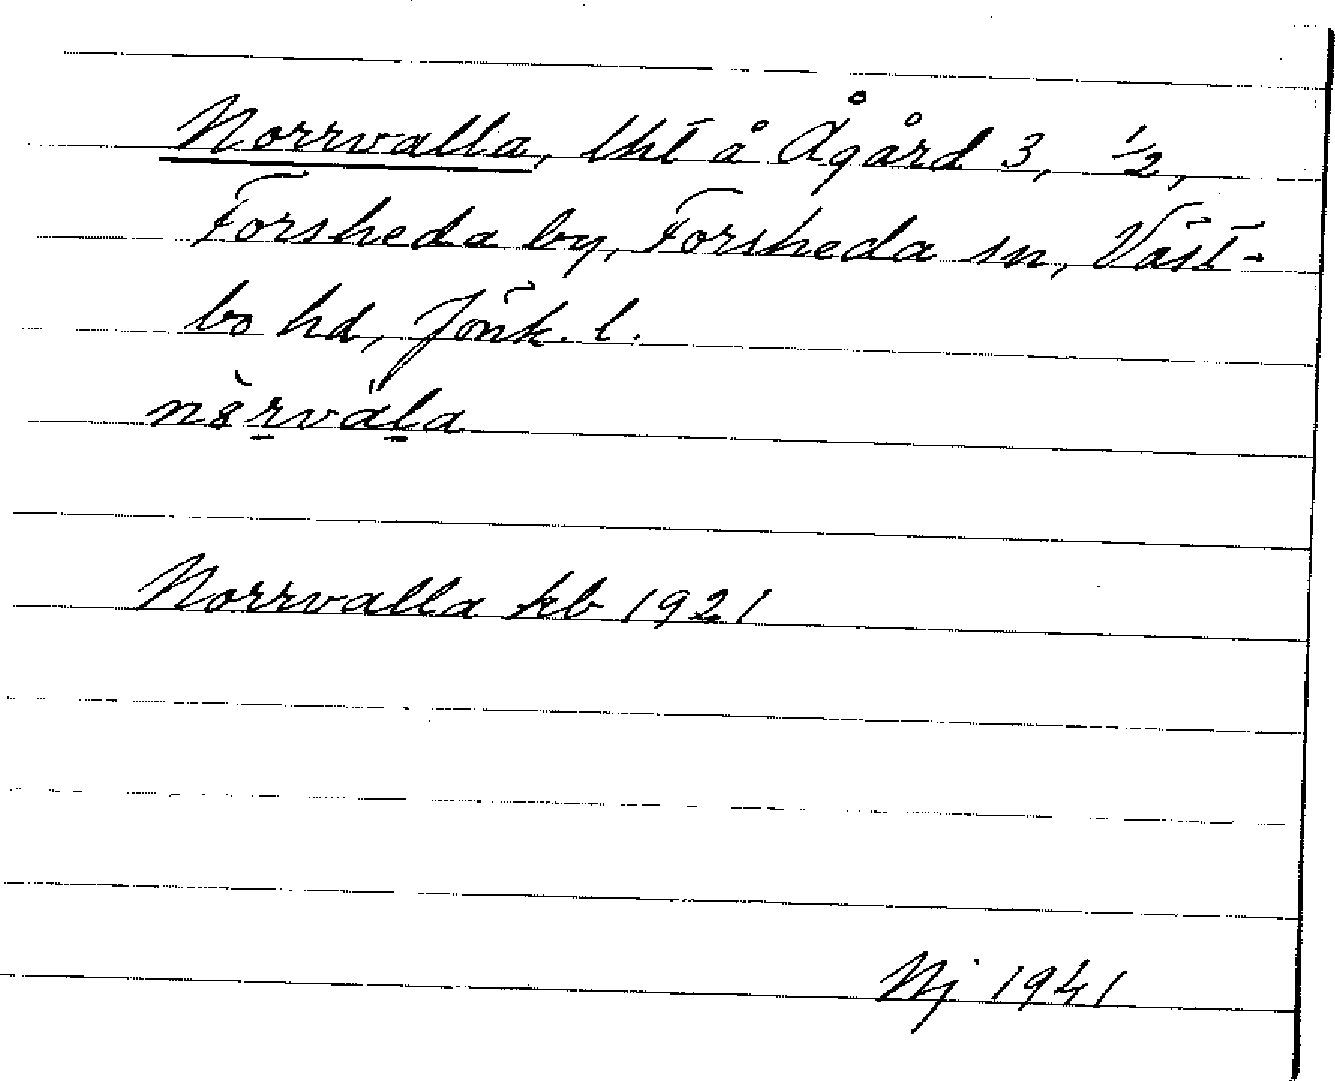 Norrvalla, lht å Ågård 3, 1/2,
Forsheda by, Forsheda sn, Väst-
bo hd, Jönk. l.
Norrvalla kb 1921
Nj 1941